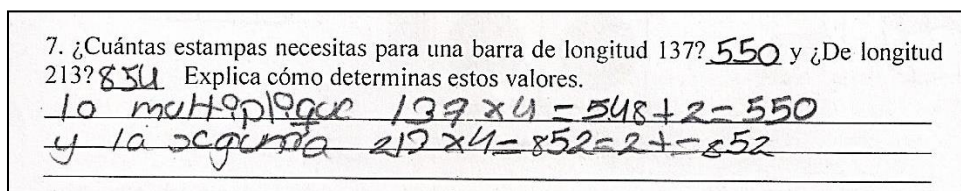 7. ¿Cuántas estampas necesitas para una barra de longitud 137? 550 y ¿De longitud
213? 854 Explica cómo determinas estos valores.
lo multiplique 137 x4 = 548+2=550
y la segunda 213 x4=852=2+=852